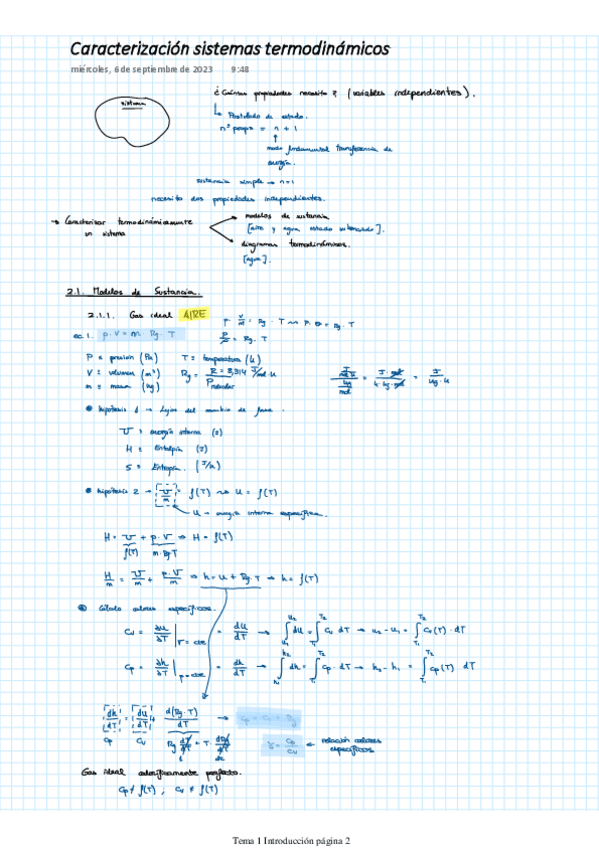 Caracterización sistemas termodinámicos
miércoles, 6 de septiembre de 2023 9:48
sistema
¿Cuántas propiedades necesito? (variables independientes).
Postulado de estado.
nº props = n + 1
modo fundamental transferencia de
energía.
sustancia simple → n=1
necesito dos propiedades independientes.
→ Caracterizar termodinámicamente
un sistema
modelos de sustancia
[aire y agua estado subenfriado].
diagramas termodinámicos.
[agua].
2.1. Modelos de Sustancia.
2.1.1. Gas ideal AIRE
ec. 1. p·V = m·Rg·T
P = presión (Pa) T = temperatura (K)
V = volumen (m³)
m = masa (kg)
Rg = R = 8,314 J/mol·K / Pmolecular
hipótesis 1 → Lejos del cambio de fase.
U = energía interna (J)
H = Entalpía (J)
S = Entropía. (J/K)
hipótesis 2 → U/m = f(T) → u = f(T)
u → energía interna específica.
H = U + p·V ⇒ H = f(T)
f(T) m·Rg·T
H/m = U/m + p·V/m ⇒ h = u + Rg·T → h = f(T)
Cálculo calores específicos.
Cv = ∂u/∂T |v=cte = du/dT → ∫ du = ∫ Cv dT → u₂ - u₁ = ∫ Cv(T)·dT
Cp = ∂h/∂T |p=cte = dh/dT → ∫ dh = ∫ Cp·dT → h₂ - h₁ = ∫ Cp(T) dT
dh/dT = du/dT + d(Rg·T)/dT → Cp = Cv + Rg
Cp Cv
γ = Cp/Cv ← relación calores
específicos
Gas ideal caloríficamente perfecto.
Cp ≠ f(T) ; Cv ≠ f(T)
Tema 1 Introducción página 2